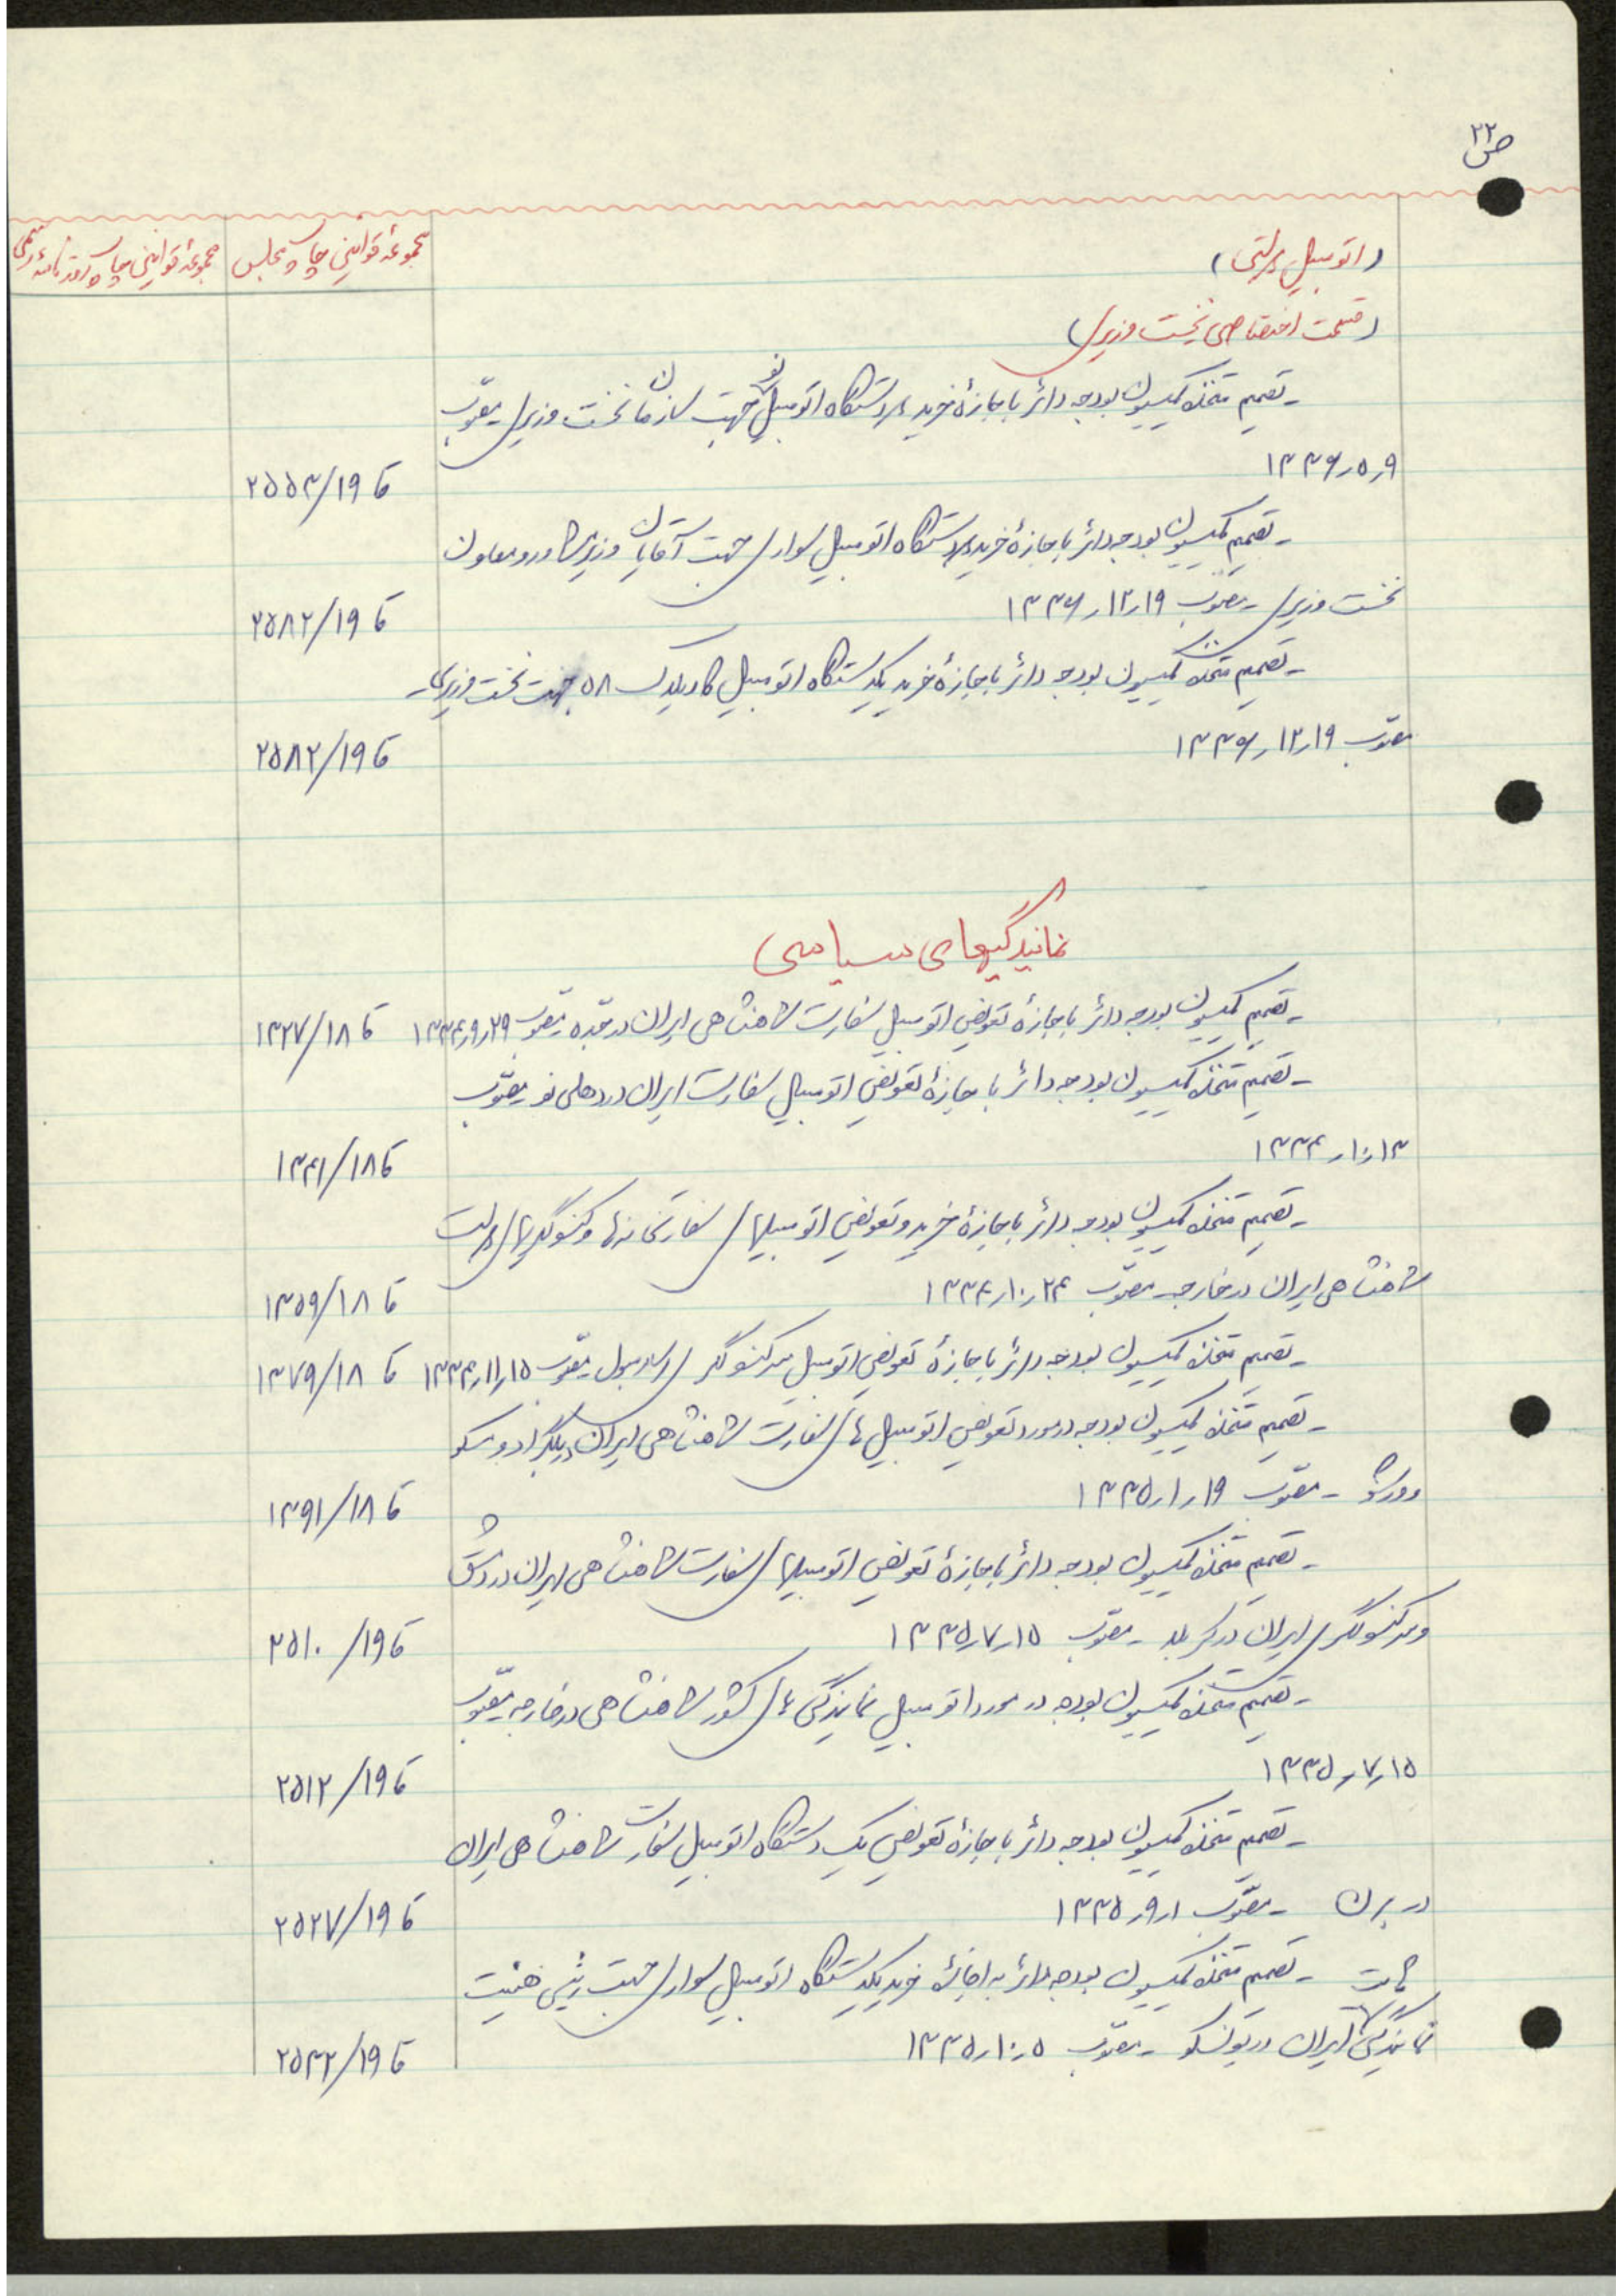 ص ۲۲
مجموعهٔ قوانین چاپ مجلس
مجموعهٔ قوانین چاپ روزنامهٔ رسمی
(اتومبیل دولتی)
(قسمت اختصاصی نخست وزیری)
ـ تصمیم متخذه کمیسیون بودجه دائر باجازهٔ خرید دستگاه اتومبیل نو جهت سازمان نخست وزیری ـ مصوّب
۱۳۳۶ر۵ر۹
تا ۲۵۵۳/۱۹
ـ تصمیم کمیسیون بودجه دائر باجازهٔ خرید دستگاه اتومبیل سواری جهت آقایان وزیر مشاور و معاون
نخست وزیری ـ مصوّب ۱۳۳۶ر۱۲ر۱۹
تا ۲۵۸۲/۱۹
ـ تصمیم متخذه کمیسیون بودجه دائر باجازهٔ خرید یکدستگاه اتومبیل کادیلاک ۵۸ جهت نخست وزیری ـ
مصوّب ۱۳۳۶ر۱۲ر۱۹
تا ۲۵۸۲/۱۹
نمایندگیهای سیاسی
ـ تصمیم کمیسیون بودجه دائر باجازهٔ تعویض اتومبیل سفارت شاهنشاهی ایران در جدّه ـ مصوّب ۱۳۳۴ر۹ر۲۹ تا ۱۳۲۷/۱۸
ـ تصمیم متخذه کمیسیون بودجه دائر باجازهٔ تعویض اتومبیل سفارت ایران در دهلی نو ـ مصوّب
۱۳۳۴ر۱۰ر۱۳
تا ۱۳۴۱/۱۸
ـ تصمیم متخذه کمیسیون بودجه دائر باجازهٔ خرید و تعویض اتومبیلهای سفارتخانه‌ها و کنسولگریهای دولت
شاهنشاهی ایران در خارجه ـ مصوّب ۱۳۳۴ر۱۰ر۲۴
تا ۱۳۵۹/۱۸
ـ تصمیم متخذه کمیسیون بودجه دائر باجازهٔ تعویض اتومبیل سرکنسولگری اسلامبول ـ مصوّب ۱۳۳۴ر۱۱ر۱۵ تا ۱۳۷۹/۱۸
ـ تصمیم متخذه کمیسیون بودجه در مورد تعویض اتومبیل های سفارت شاهنشاهی ایران در بلگراد و مسکو
و ورشو ـ مصوّب ۱۳۳۵ر۱ر۱۹
تا ۱۳۹۱/۱۸
ـ تصمیم متخذه کمیسیون بودجه دائر باجازهٔ تعویض اتومبیلهای سفارت شاهنشاهی ایران در دمشق
و سرکنسولگری ایران در کربلا ـ مصوّب ۱۳۳۵ر۷ر۱۵
تا ۲۵۱۰/۱۹
ـ تصمیم متخذه کمیسیون بودجه در مورد اتومبیل نمایندگی های کشور شاهنشاهی در خارجه ـ مصوّب
۱۳۳۵ر۷ر۱۵
تا ۲۵۱۲/۱۹
ـ تصمیم متخذه کمیسیون بودجه دائر باجازهٔ تعویض یک دستگاه اتومبیل سفارت شاهنشاهی ایران
در برن ـ مصوّب ۱۳۳۵ر۹ر۱
تا ۲۵۲۷/۱۹
ـ تصمیم متخذه کمیسیون بودجه دائر به اجازهٔ خرید یکدستگاه اتومبیل سواری جهت رئیس هیئت
نمایندگی ایران در یونسکو ـ مصوّب ۱۳۳۵ر۱۰ر۵
تا ۲۵۳۲/۱۹